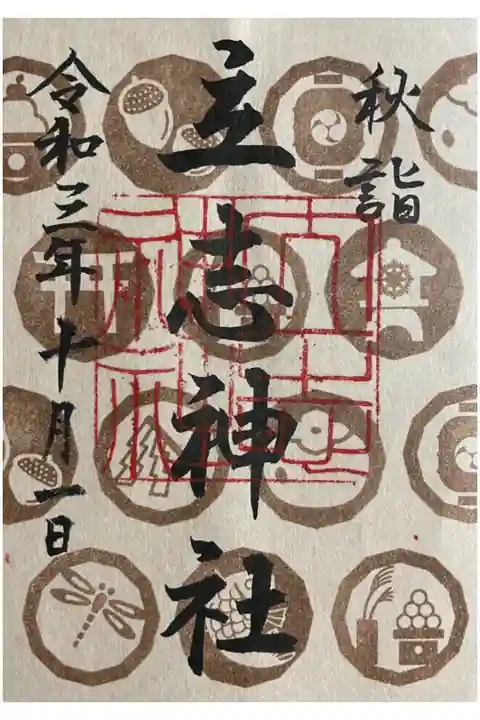 秋詣
立志神社
令和三年十月一日